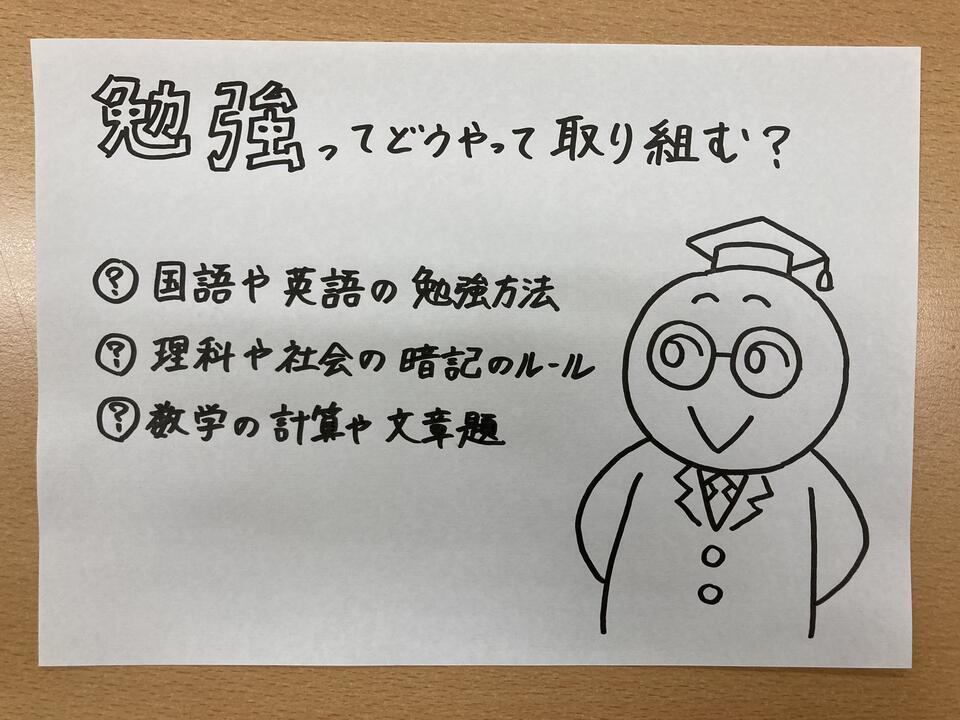 勉強ってどうやって取り組む?
? 国語や英語の勉強方法
? 理科や社会の暗記のルール
? 数学の計算や文章題